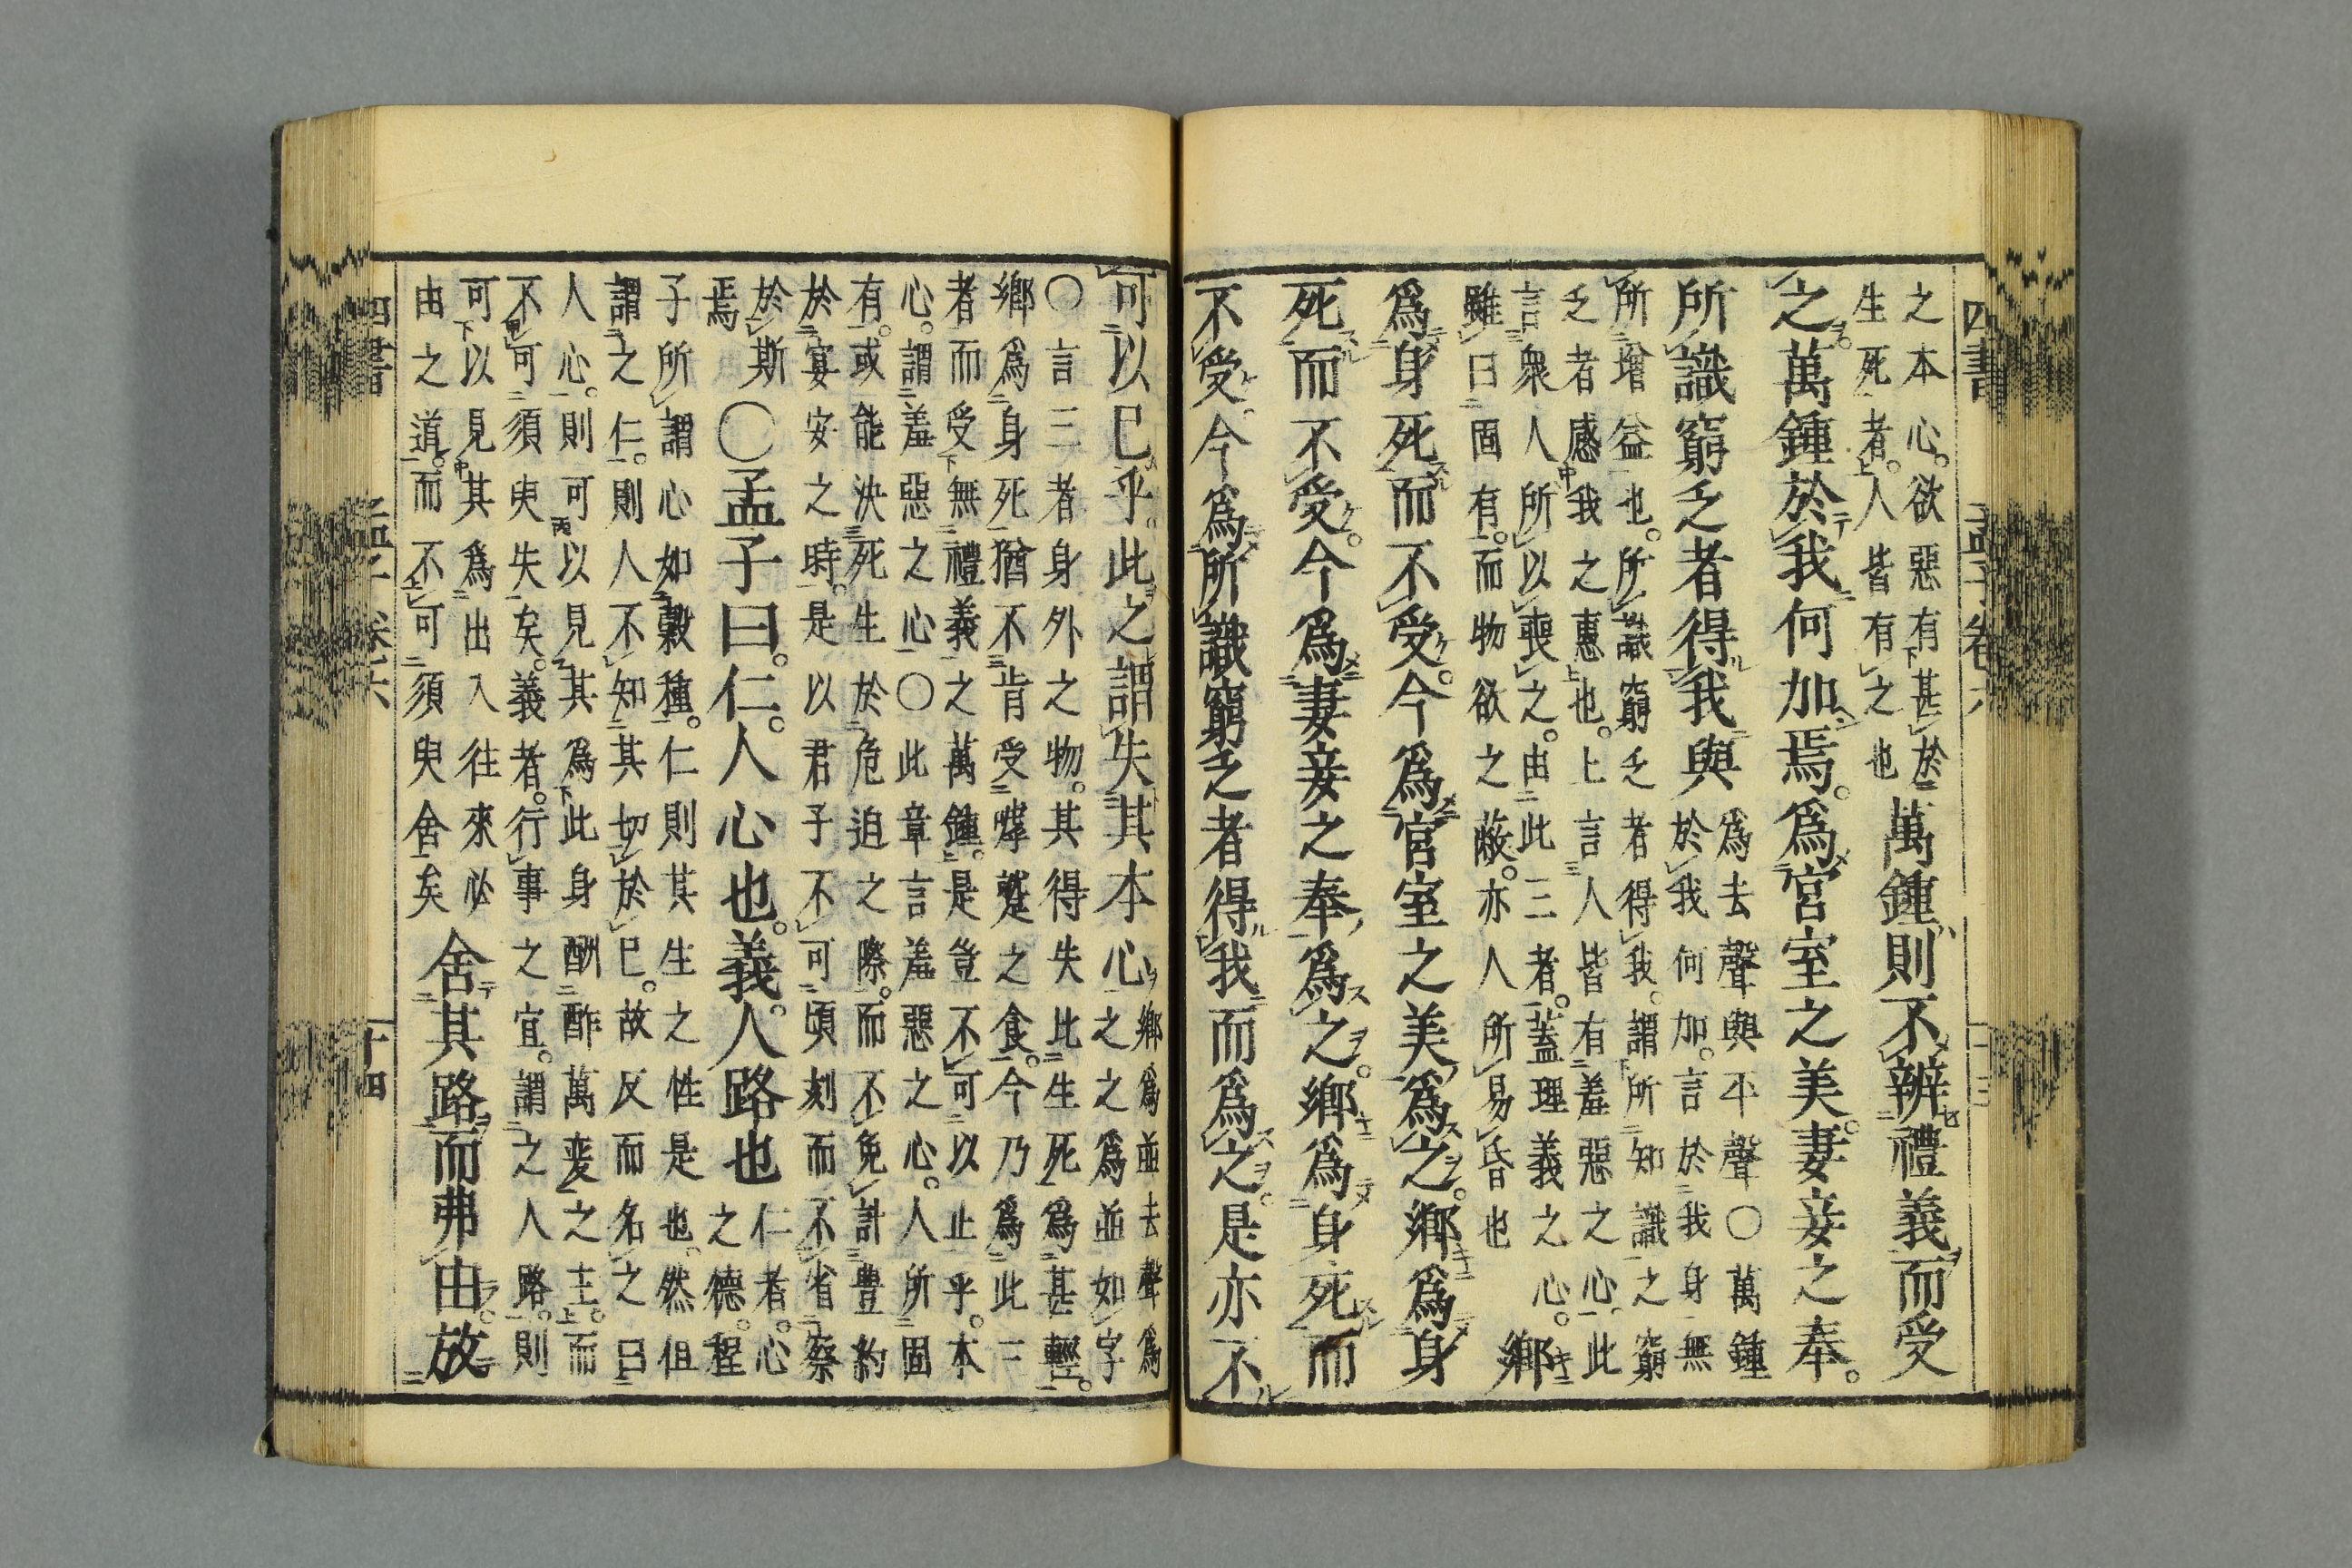 四書 孟子卷六 十三
之本心。欲惡有甚於
生死者。人皆有之也
萬鍾則不辨禮義而受
之。萬鍾於我何加焉。爲宮室之美。妻妾之奉。
所識窮乏者得我與
爲去聲與平聲〇萬鍾
於我何加。言於我身無
所增益也。所識窮乏者得我。謂所知識之窮
乏者感我之惠也。上言人皆有羞惡之心。此
言衆人所以喪之。由此三者。蓋理義之心。
雖曰固有。而物欲之蔽。亦人所易昏也
鄉
爲身死而不受。今爲宮室之美爲之。鄉爲身
死而不受。今爲妻妾之奉爲之。鄉爲身死而
不受。今爲所識窮乏者得我而爲之。是亦不
可以已乎。此之謂失其本心
鄉爲並去聲爲
之之爲並如字
〇言三者身外之物。其得失比生死爲甚輕。
鄉爲身死猶不肯受嘑蹴之食。今乃爲此三
者而受無禮義之萬鍾。是豈不可以止乎。本
心。謂羞惡之心〇此章言羞惡之心。人所固
有。或能決死生於危迫之際。而不免計豐約
於宴安之時。是以君子不可頃刻而不省察
於斯
焉
〇孟子曰。仁。人心也。義。人路也
仁者。心
之德。程
子所謂心如穀種。仁則其生之性是也。然但
謂之仁。則人不知其切於已。故反而名之曰
人心。則可以見其爲此身酬酢萬變之主。而
不可須臾失矣。義者。行事之宜。謂之人路。則
可以見其爲出入往來必
由之道。而不可須臾舍矣
舍其路而弗由。放
四書 孟子 卷六 十四